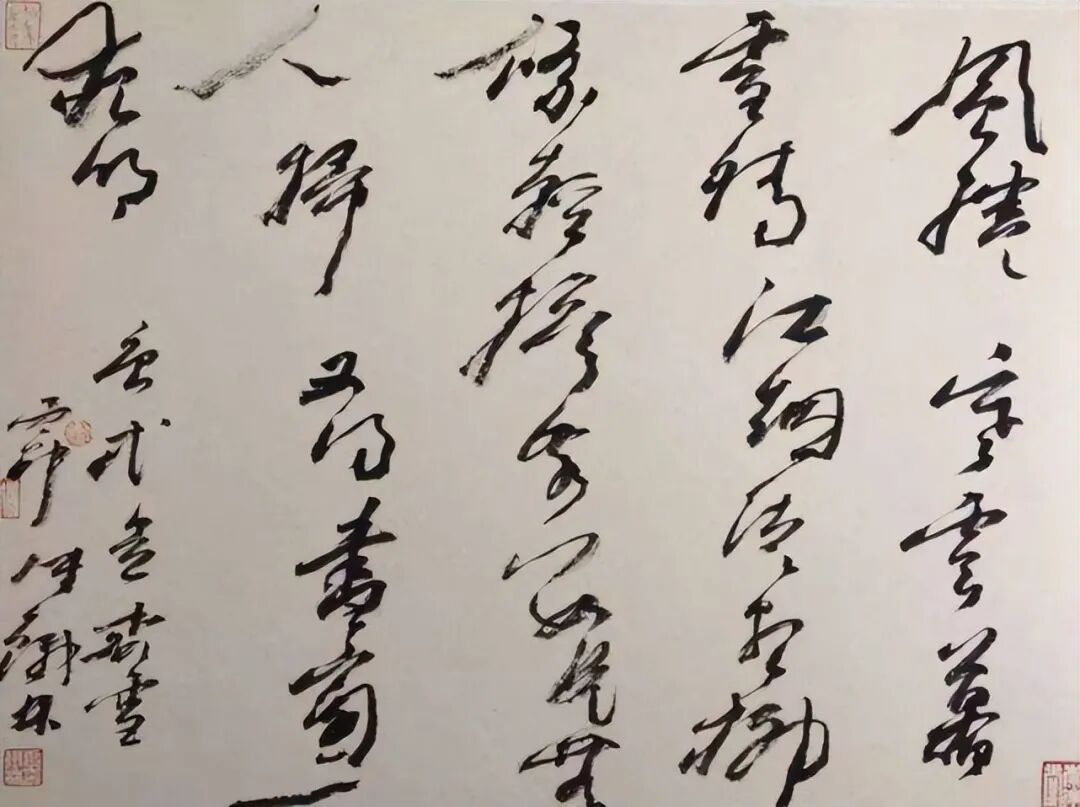 風捲寒雲暮
雪晴江烟洗盡柳
條輕檐前數片無
人掃又得書窗一
夜明
唐戎昱霽雪